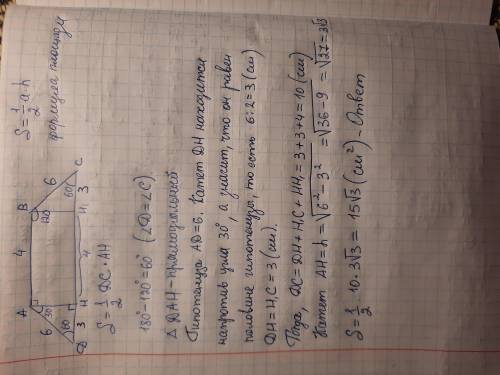 A 4 B
S = 1/2 a·h
формула площади
6 30° 120° 6
60° 60°
D 3 H 4 H₁ 3 C
S = 1/2 DC·AH
180°-120° = 60° (∠D=∠C)
△ DAH - прямоугольный
Гипотенуза AD=6. Катет DH находится
напротив угла 30°, а значит, что он равен
половине гипотенузы, то есть 6:2=3 (см)
DH = H₁C = 3 (см).
Тогда, DC = DH + H₁C + HH₁ = 3+3+4 = 10 (см)
Катет AH = h = √6²-3² = √36-9 = √27 = 3√3
S = 1/2 · 10 · 3√3 = 15√3 (см²) - Ответ